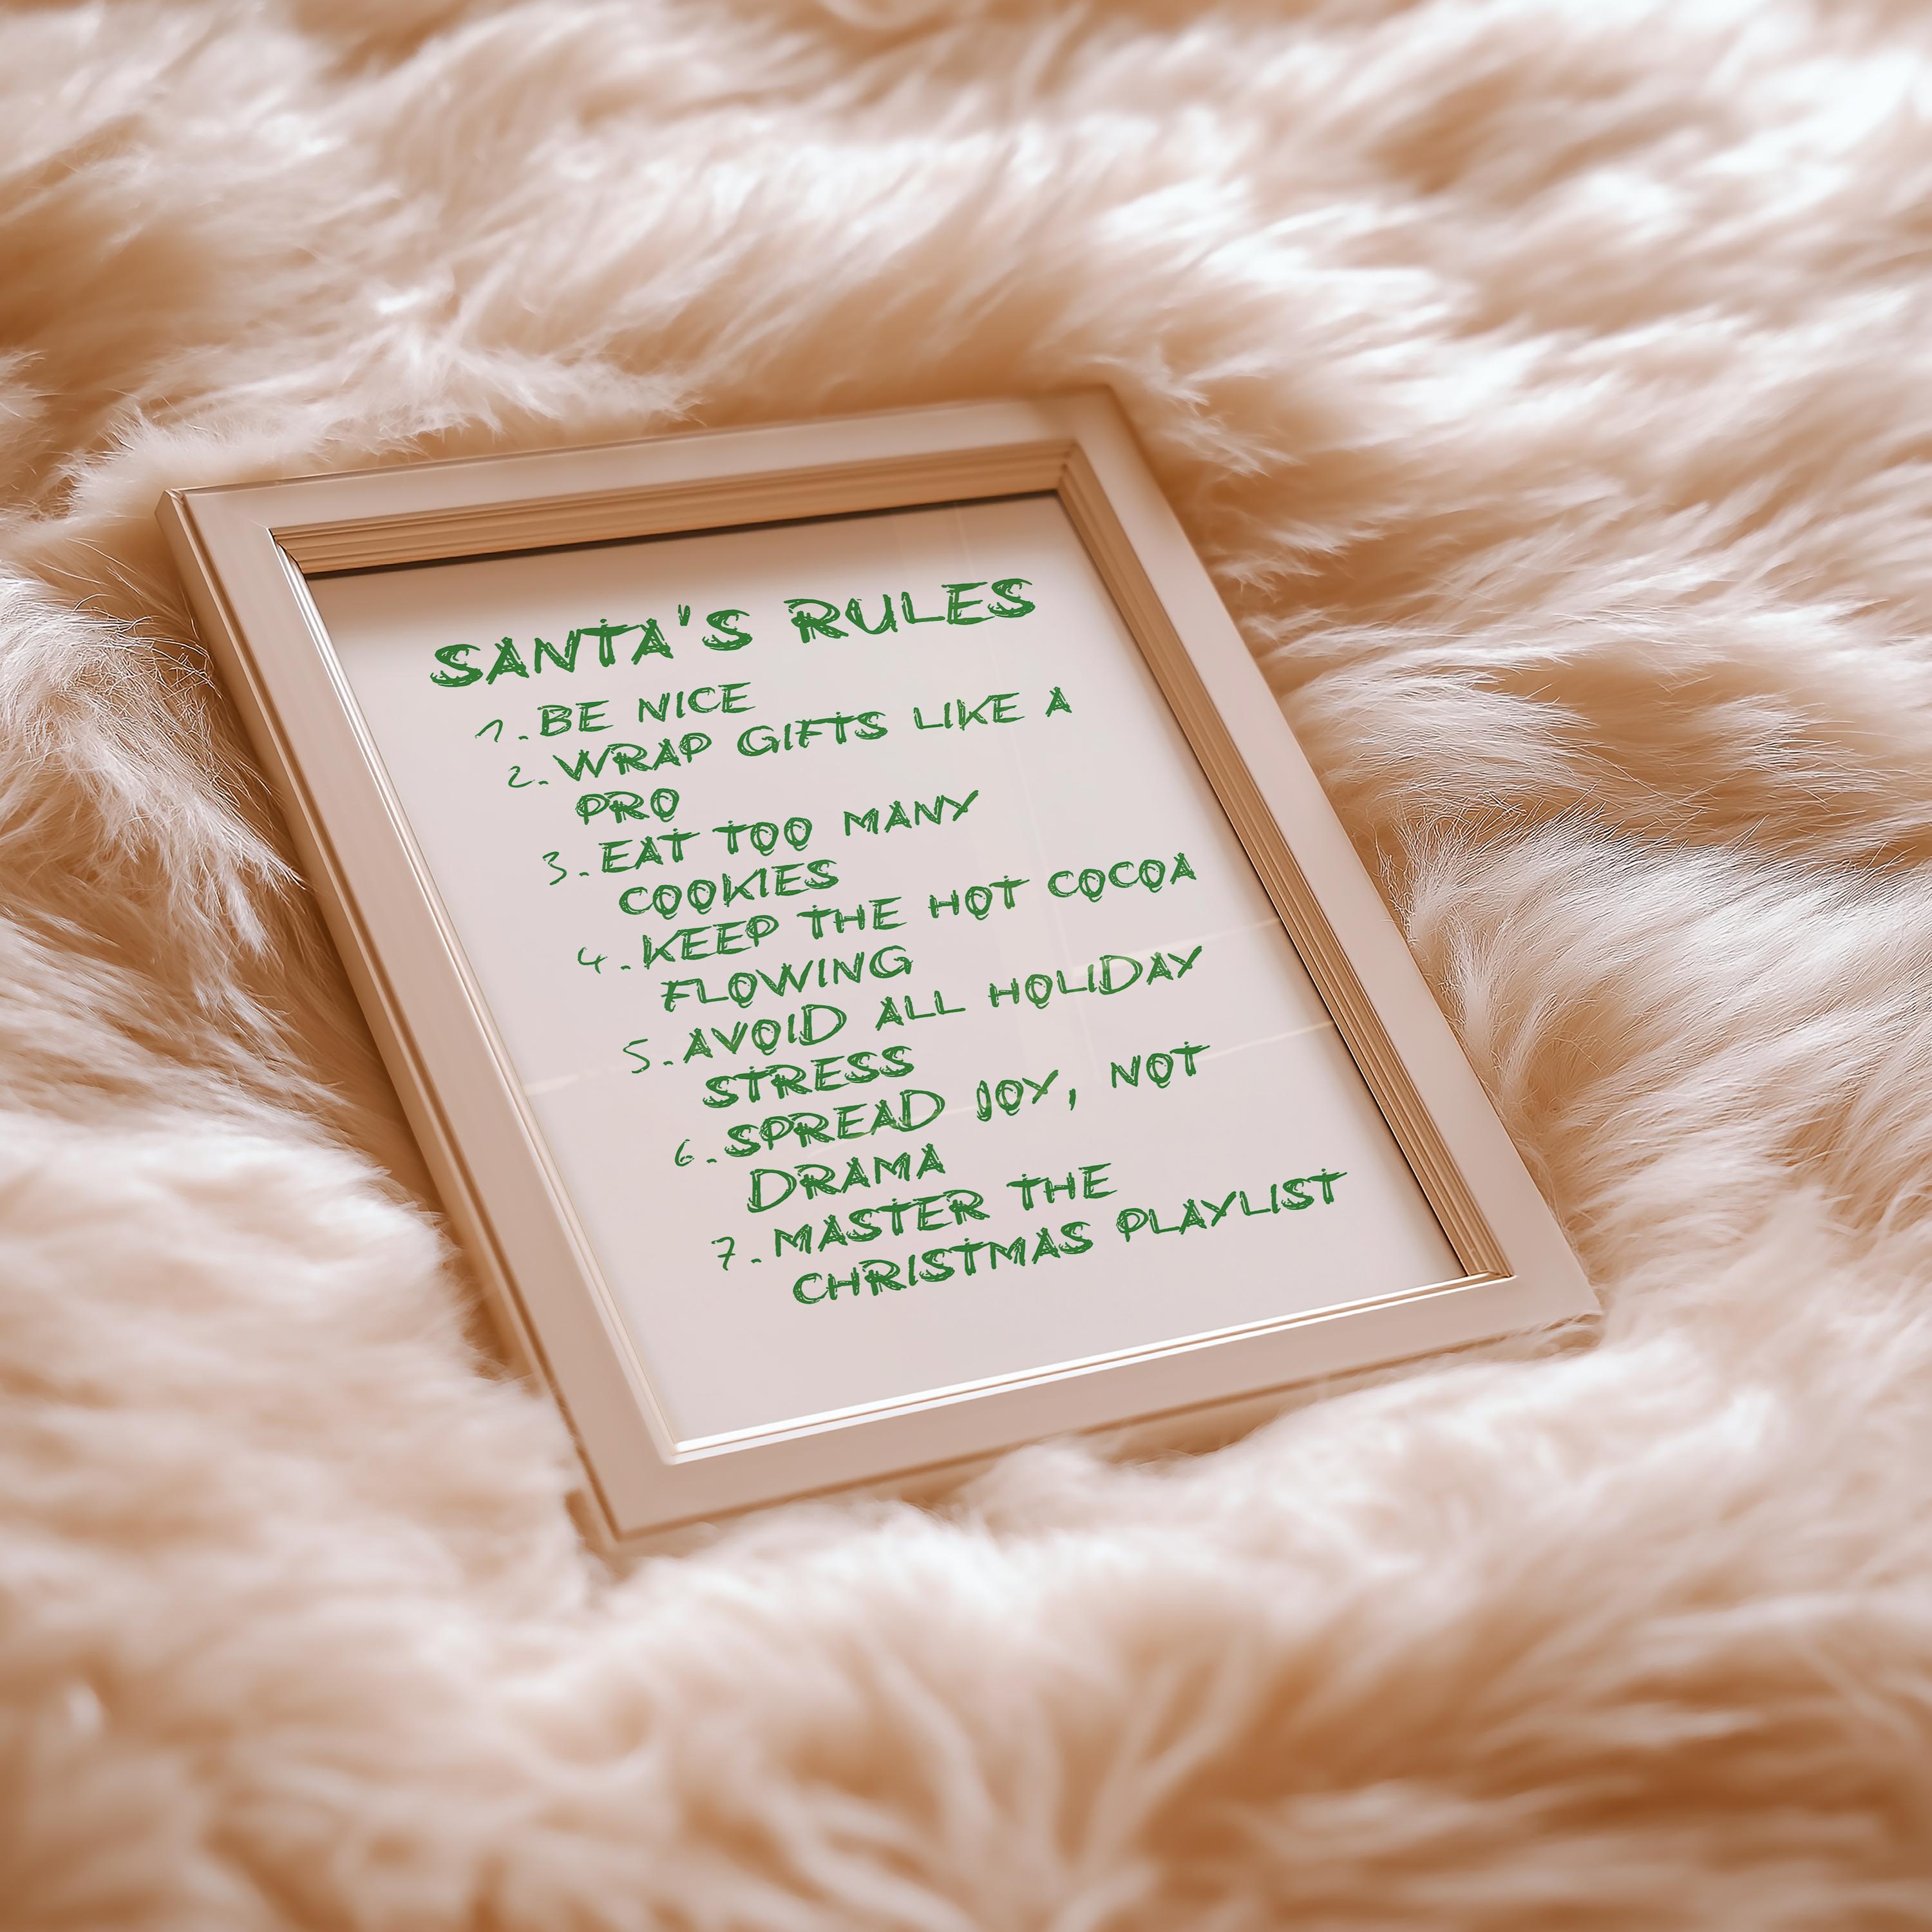 SANTA'S RULES
1. BE NICE
2. WRAP GIFTS LIKE A
PRO
3. EAT TOO MANY
COOKIES
4. KEEP THE HOT COCOA
FLOWING
5. AVOID ALL HOLIDAY
STRESS
6. SPREAD JOY, NOT
DRAMA
7. MASTER THE
CHRISTMAS PLAYLIST